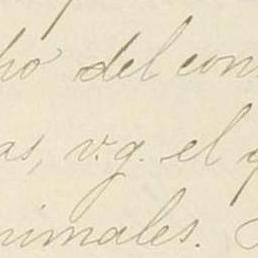 ho del con
as, v.g. el
nimales.